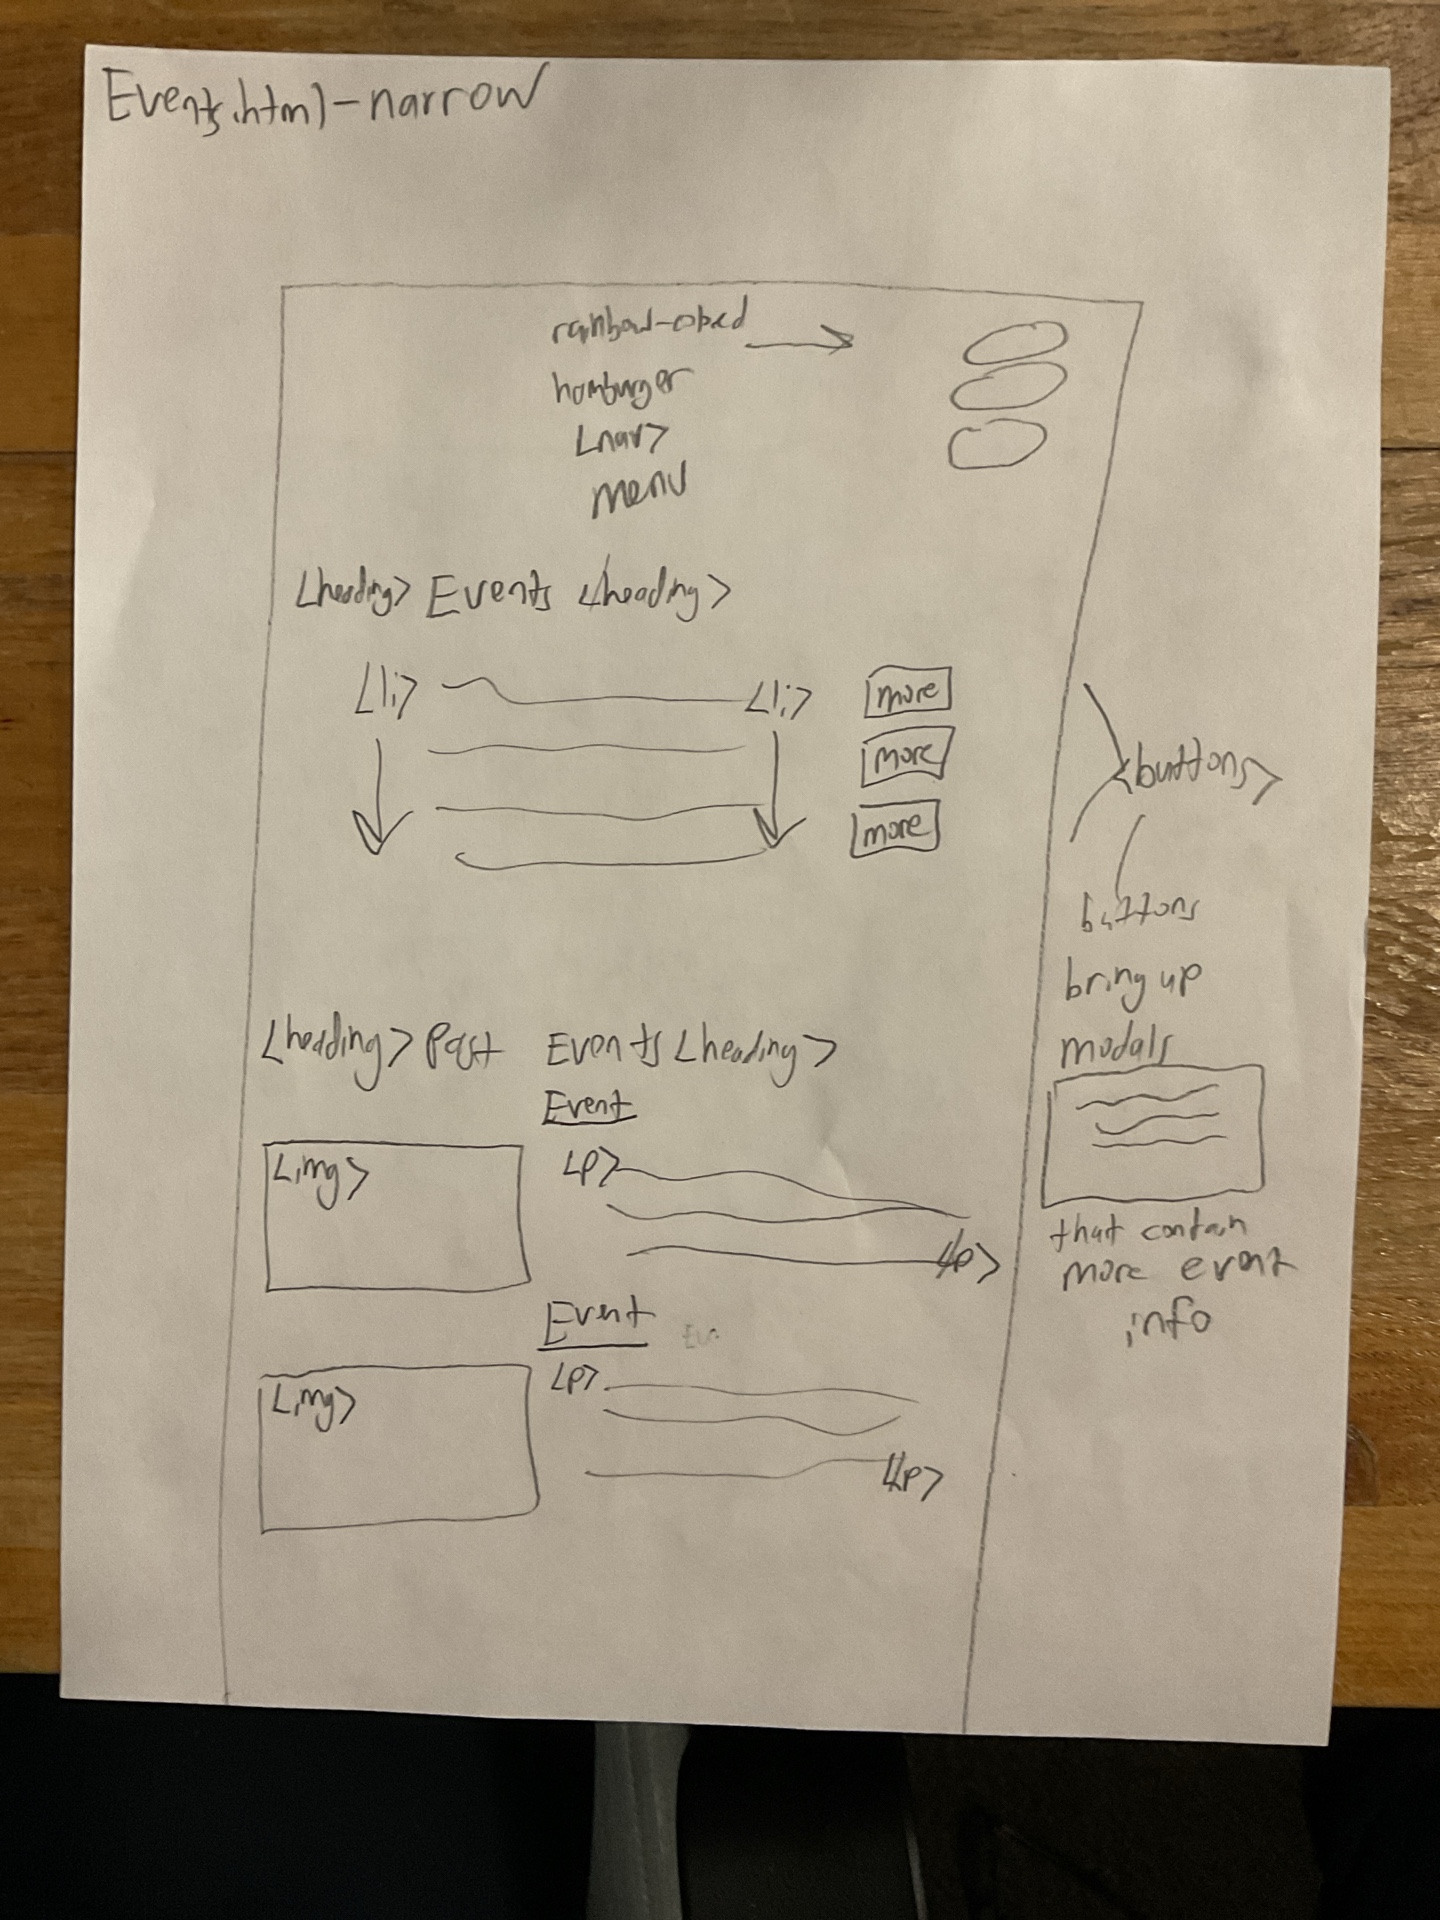 Events.html-narrow
hamburger
<nav>
menu
<heading> Events </heading>
<li> <li> more
more
more
<buttons>
buttons
bring up
modals
that contain
more event
info
<heading> Past Events <heading>
Event
<img> <p>
</p>
Event
<img> <p>
</p>